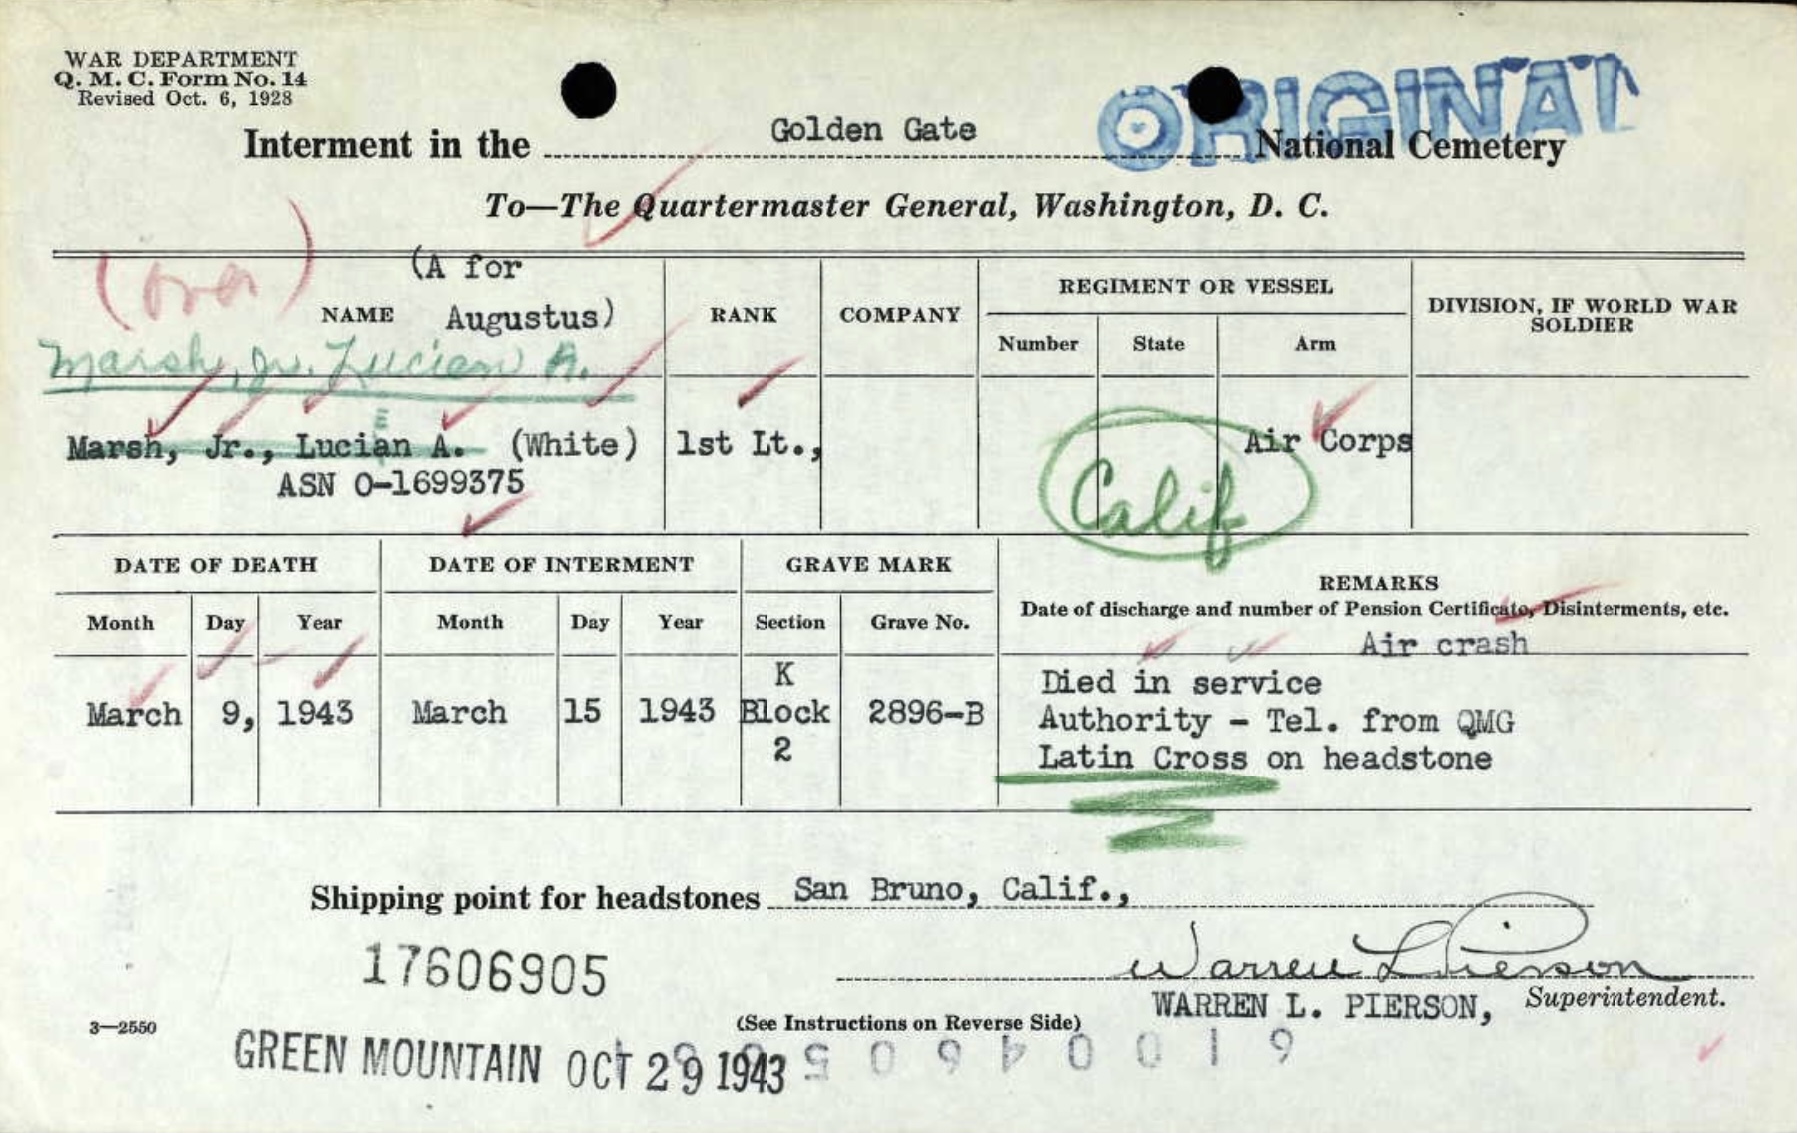 WAR DEPARTMENT
Q. M. C. Form No. 14
Revised Oct. 6, 1928
ORIGINAL
Interment in the Golden Gate National Cemetery
To—The Quartermaster General, Washington, D. C.
(over)
(A for
Augustus)
NAME
RANK
COMPANY
REGIMENT OR VESSEL
Number
State
Arm
DIVISION, IF WORLD WAR
SOLDIER
Marsh, Jr. Lucian A.
Marsh, Jr., Lucian A. (White)
ASN O-1699375
1st Lt.,
Air Corps
Calif
DATE OF DEATH
DATE OF INTERMENT
GRAVE MARK
REMARKS
Date of discharge and number of Pension Certificate, Disinterments, etc.
Month
Day
Year
Month
Day
Year
Section
Grave No.
March
9,
1943
March
15
1943
K
Block
2
2896-B
Air crash
Died in service
Authority - Tel. from QMG
Latin Cross on headstone
Shipping point for headstones San Bruno, Calif.,
17606905
Warren L Pierson
WARREN L. PIERSON, Superintendent.
3—2550
(See Instructions on Reverse Side)
GREEN MOUNTAIN OCT 29 1943